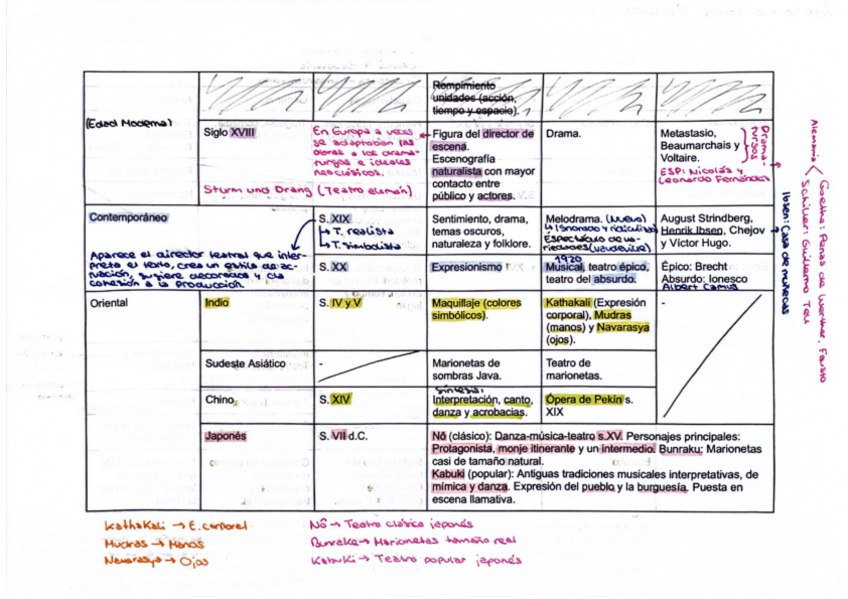 Rompimiento
unidades (acción,
tiempo y espacio).
(Edad Moderna)
Siglo XVIII
En Europa a veces
se adaptaban las
obras a los drama-
turgos e ideales
neoclásicos.
Sturm und Drang (Teatro alemán)
Figura del director de
escena.
Escenografía
naturalista con mayor
contacto entre
público y actores.
Drama.
Metastasio,
Beaumarchais y
Voltaire.
Drama-
turgos
ESP: Nicolás y
Leonardo Fernández
Alemania
Goethe: Penas de Werther, Fausto
Schiller: Guillermo Tell
Ibsen: Casa de muñecas
Contemporáneo
Aparece el director teatral que inter-
preta el texto, crea un estilo de ac-
tuación, sugiere decorados y da
cohesión a la producción.
S. XIX
T. realista
T. simbolista
Sentimiento, drama,
temas oscuros,
naturaleza y folklore.
Melodrama. (Nuevo)
Ignorado y ridiculizado
Espectáculo de va-
riedades (vaudeville)
August Strindberg,
Henrik Ibsen, Chejov
y Víctor Hugo.
S. XX
Expresionismo
1920
Musical, teatro épico,
teatro del absurdo.
Épico: Brecht
Absurdo: Ionesco
Albert Camus
Oriental
Indio
S. IV y V
Maquillaje (colores
simbólicos).
Kathakali (Expresión
corporal), Mudras
(manos) y Navarasya
(ojos).
-
Sudeste Asiático
-
Marionetas de
sombras Java.
Teatro de
marionetas.
Chino
S. XIV
Síntesis:
Interpretación, canto,
danza y acrobacias.
Ópera de Pekín s.
XIX
Japonés
S. VII d.C.
Nō (clásico): Danza-música-teatro s.XV. Personajes principales:
Protagonista, monje itinerante y un intermedio. Bunraku; Marionetas
casi de tamaño natural.
Kabuki (popular): Antiguas tradiciones musicales interpretativas, de
mímica y danza. Expresión del pueblo y la burguesía. Puesta en
escena llamativa.
Kathakali → E. corporal
Mudras → Manos
Navarasya → Ojos
Nō → Teatro clásico japonés
Bunraku → Marionetas tamaño real
Kabuki → Teatro popular japonés